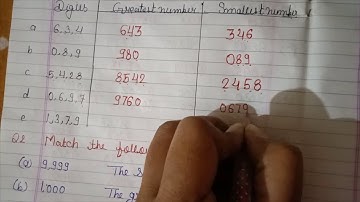 Digits Greatest number Smallest number
a 6,3,4 643 346
b 0,8,9 980 089
c 5,4,2,8 8542 2458
d 0,6,9,7 9760 0679
e 1,3,7,9
Q2 Match the follo
(a) 9,999 The
(b) 1,000 The